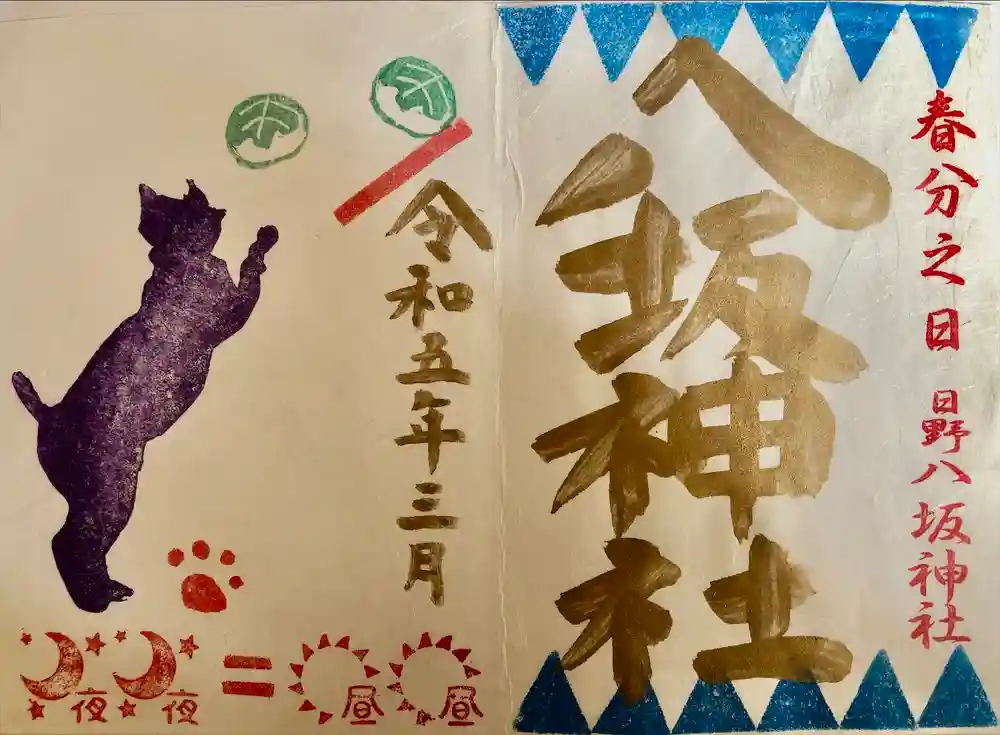 春分之日 日野八坂神社
八坂神社
令和五年三月
夜 夜 = 昼 昼